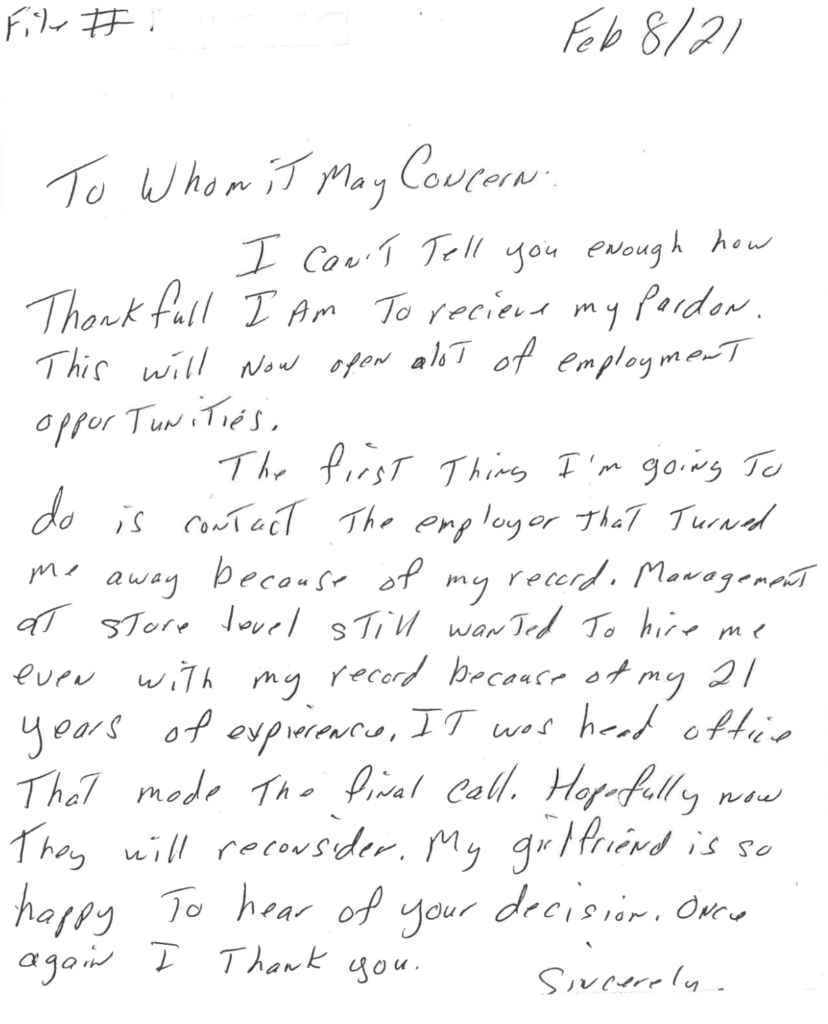 File #.
Feb 8/21
To Whom iT May Concern.
I Can'T Tell you enough how
Thankfull I Am To recieve my Pardon.
This will Now open aloT of employmenT
opporTuniTies.
The firsT Thing I'm going To
do is conTacT The employer thaT Turned
me away because of my record. ManagemenT
aT sTore level sTill wanTed To hire me
even wiTh my record because of my 21
years of expierence. IT was head office
ThaT made The final call. Hopefully now
They will reconsider. My girlfriend is so
happy To hear of your decision. Once
again I Thank you.
Sincerely.